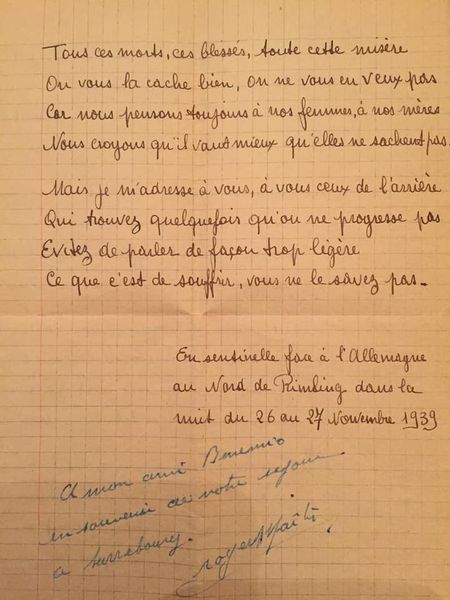 Tous ces morts, ces blessés, toute cette misère
On vous la cache bien, on ne vous en veux pas
Car nous pensons toujours à nos femmes, à nos mères
Nous croyons qu'il vaut mieux qu'elles ne sachent pas.
Mais je m'adresse à vous, à vous ceux de l'arrière
Qui trouvez quelquefois qu'on ne progresse pas
Evitez de parler de façon trop légère
Ce que c'est de souffrir, vous ne le savez pas.
En sentinelle face à l'Allemagne
au Nord de Rimling dans la
nuit du 26 au 27 Novembre 1939
A mon ami
en souvenir de notre sejour
a Sarrebourg.